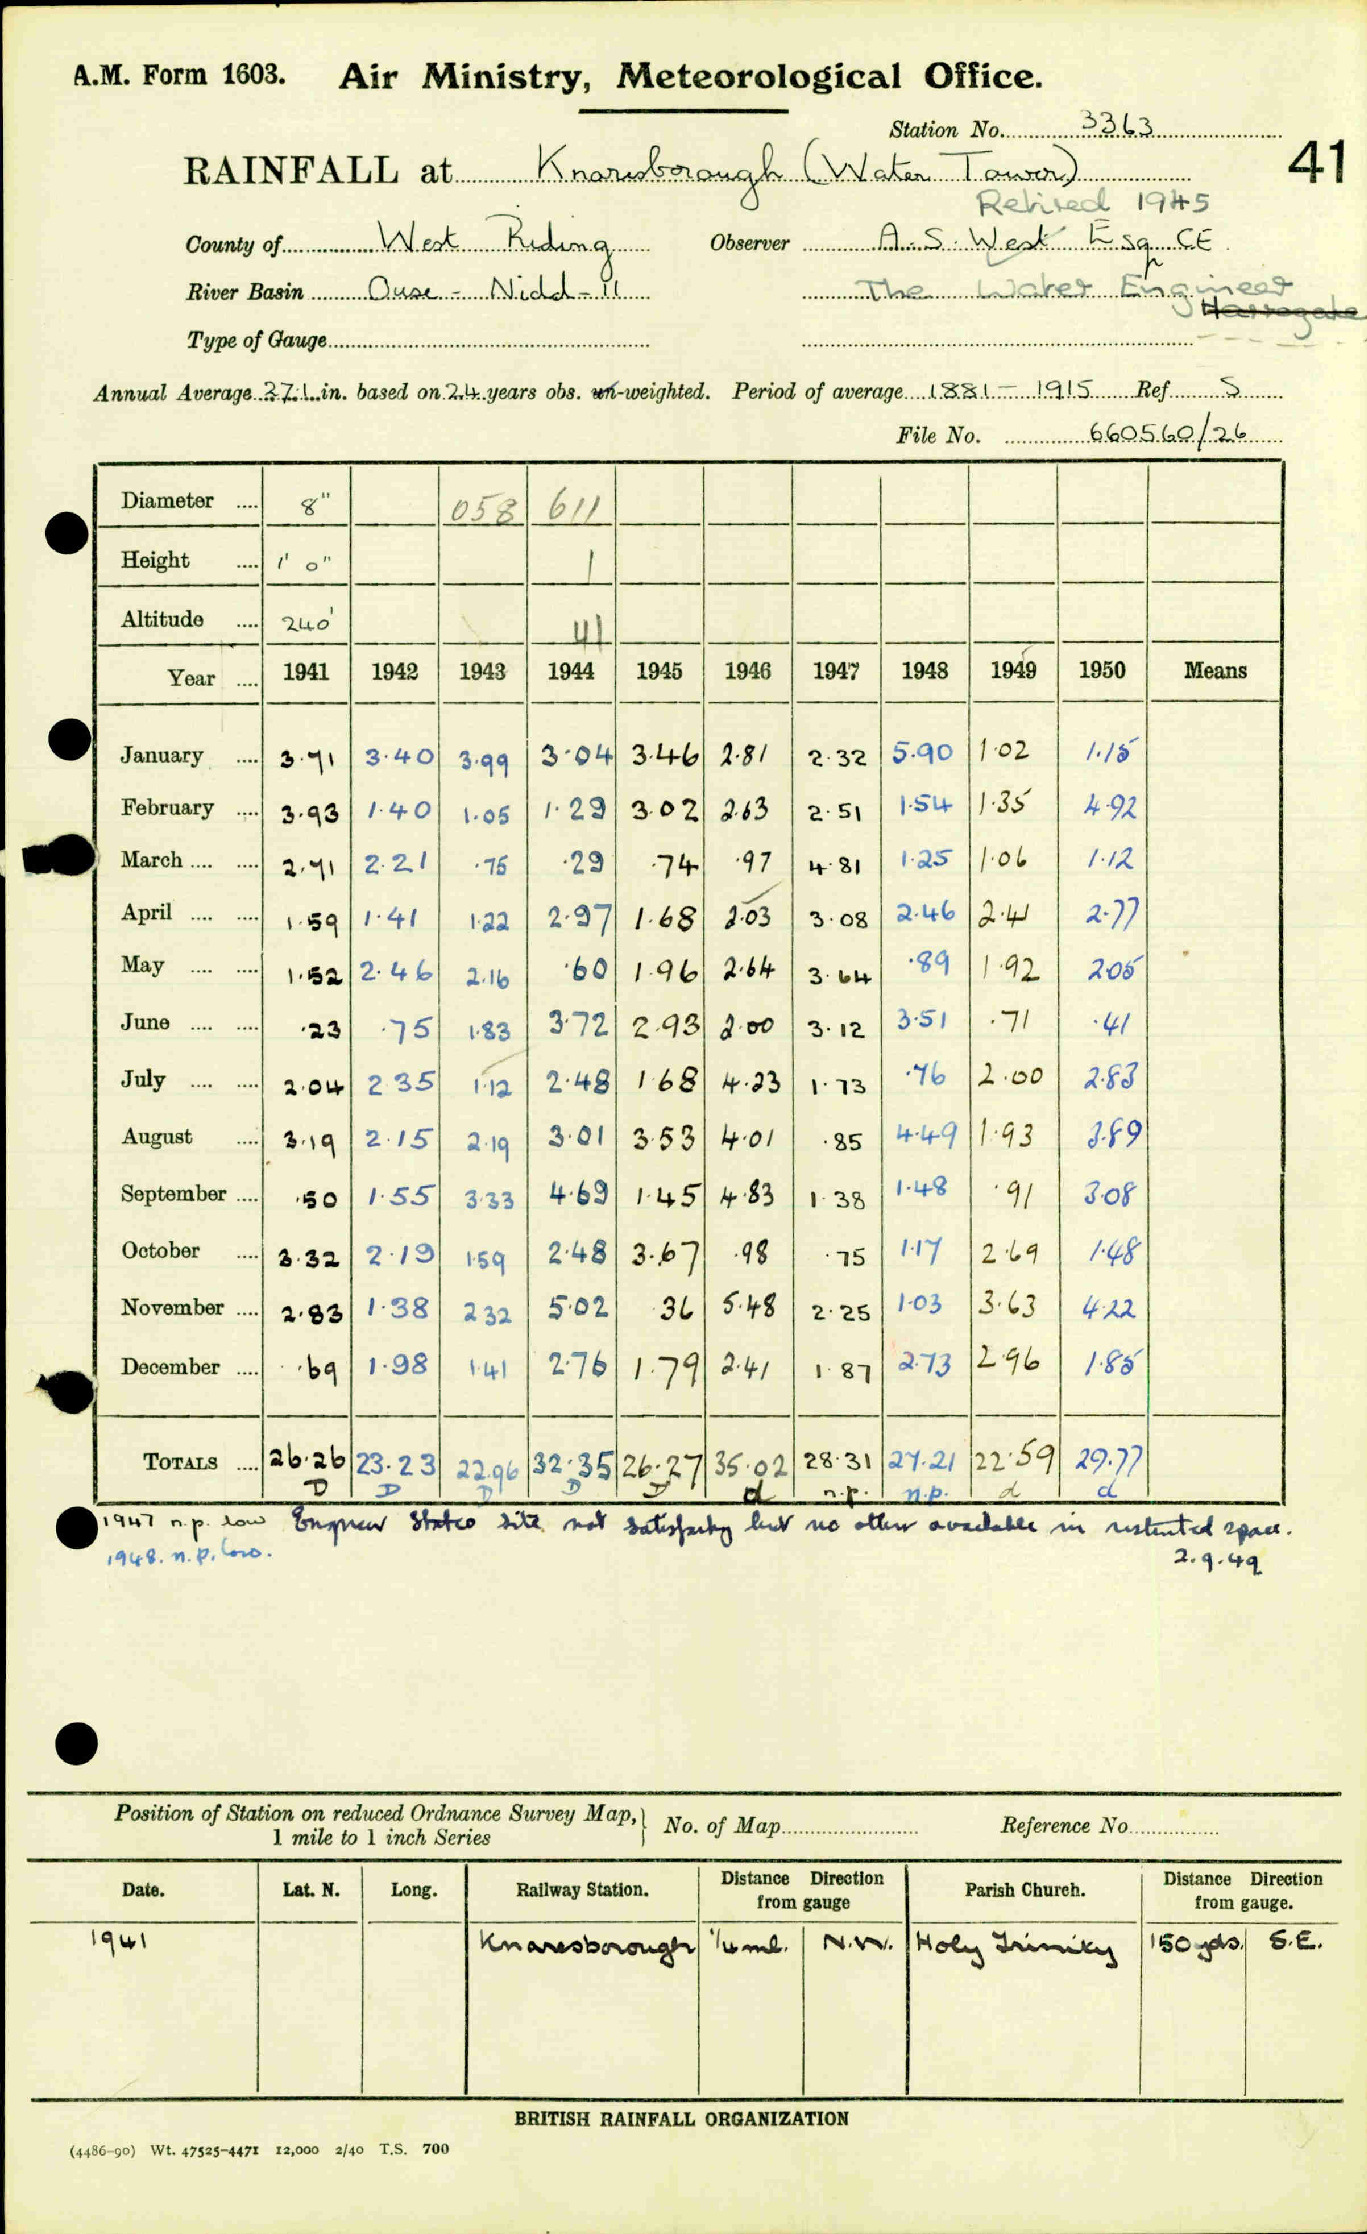 A.M. Form 1603. Air Ministry, Meteorological Office.
Station No. 3363
RAINFALL at Knaresborough (Water Tower) 41
Retired 1945
County of West Riding Observer A. S. West Esq CE
River Basin Ouse - Nidd - 11 The Water Engineer
Harrogate
Type of Gauge
Annual Average 27.1 in. based on 24 years obs. un-weighted. Period of average 1881 - 1915 Ref S
File No. 660560/26
Diameter .... 8" 058 611
Height .... 1' 0" 1
Altitude .... 240' 41
Year .... 1941 1942 1943 1944 1945 1946 1947 1948 1949 1950 Means
January .... 3.71 3.40 3.99 3.04 3.46 2.81 2.32 5.90 1.02 1.15
February .... 3.93 1.40 1.05 1.29 3.02 2.63 2.51 1.54 1.35 4.92
March .... .... 2.71 2.21 .75 .29 .74 .97 4.81 1.25 1.06 1.12
April .... .... 1.59 1.41 1.22 2.97 1.68 2.03 3.08 2.46 2.41 2.77
May .... .... 1.52 2.46 2.16 .60 1.96 2.64 3.64 .89 1.92 2.05
June .... .... .23 .75 1.83 3.72 2.93 2.00 3.12 3.51 .71 .41
July .... .... 2.04 2.35 1.12 2.48 1.68 4.23 1.73 .76 2.00 2.83
August .... 3.19 2.15 2.19 3.01 3.53 4.01 .85 4.49 1.93 3.89
September .... .50 1.55 3.33 4.69 1.45 4.83 1.38 1.48 .91 3.08
October .... 3.32 2.19 1.59 2.48 3.67 .98 .75 1.17 2.69 1.48
November .... 2.83 1.38 2.32 5.02 .36 5.48 2.25 1.03 3.63 4.22
December .... .69 1.98 1.41 2.76 1.79 2.41 1.87 2.73 2.96 1.85
TOTALS .... 26.26 23.23 22.96 32.35 26.27 35.02 28.31 27.21 22.59 29.77
D D D D D d n.p. n.p. d d
1947 n.p. low Engineer states site not satisfactory but no other available in restricted space.
1948. n.p. low. 2.9.49
Position of Station on reduced Ordnance Survey Map, No. of Map Reference No.
1 mile to 1 inch Series
Date. Lat. N. Long. Railway Station. Distance Direction from gauge Parish Church. Distance Direction from gauge.
1941 Knaresborough ¼ ml. N.W. Holy Trinity 150 yds. S.E.
BRITISH RAINFALL ORGANIZATION
(4486-90) Wt. 47525-4471 12,000 2/40 T.S. 700